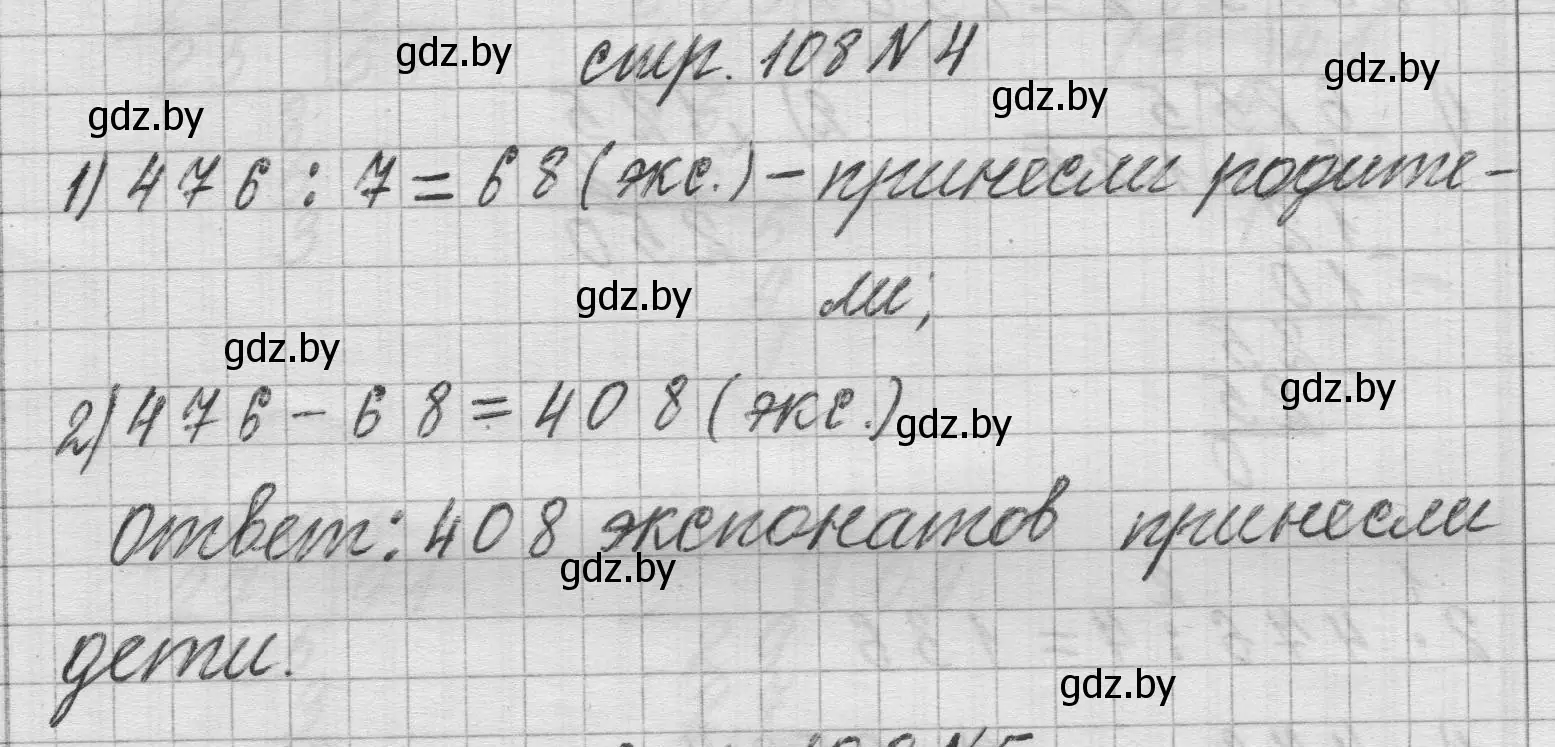 gdz.by стр. 108 № 4 gdz.by
gdz.by gdz.by
1) 476 : 7 = 68 (экс.) – принесли родите-
gdz.by ли;
gdz.by
gdz.by
2) 476 – 68 = 408 (экс.) gdz.by
Ответ: 408 экспонатов принесли
gdz.by
дети.
gdz.by